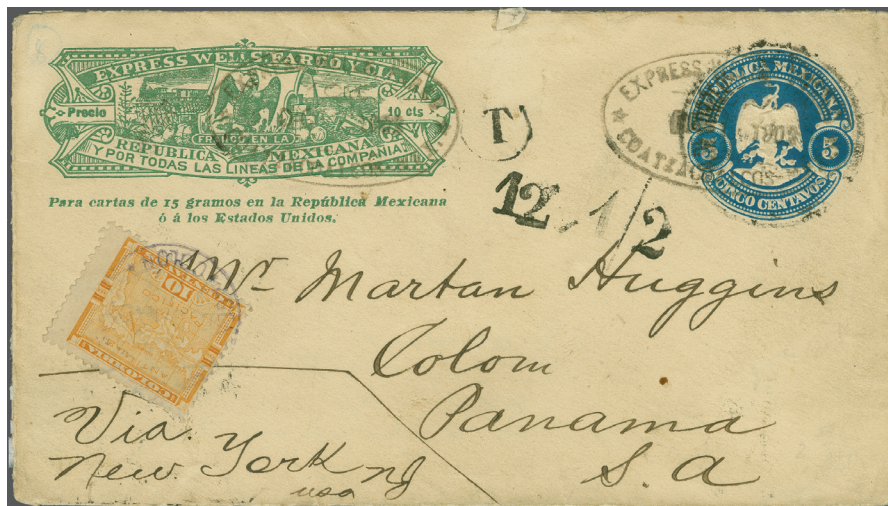 EXPRESS WELLS, FARGO Y CIA.
Precio 10 cts
FRANCO EN LA
REPUBLICA MEXICANA
Y POR TODAS LAS LINEAS DE LA COMPAÑIA.
Para cartas de 15 gramos en la República Mexicana
ó á los Estados Unidos.
T
12 1/2
EXPRESS
COATZACO
REPUBLICA MEXICANA
5 5
CINCO CENTAVOS
10
COLOMBIA
Mr Martan Huggins
Colom
Panama
S. A
Via.
New York NJ
usa